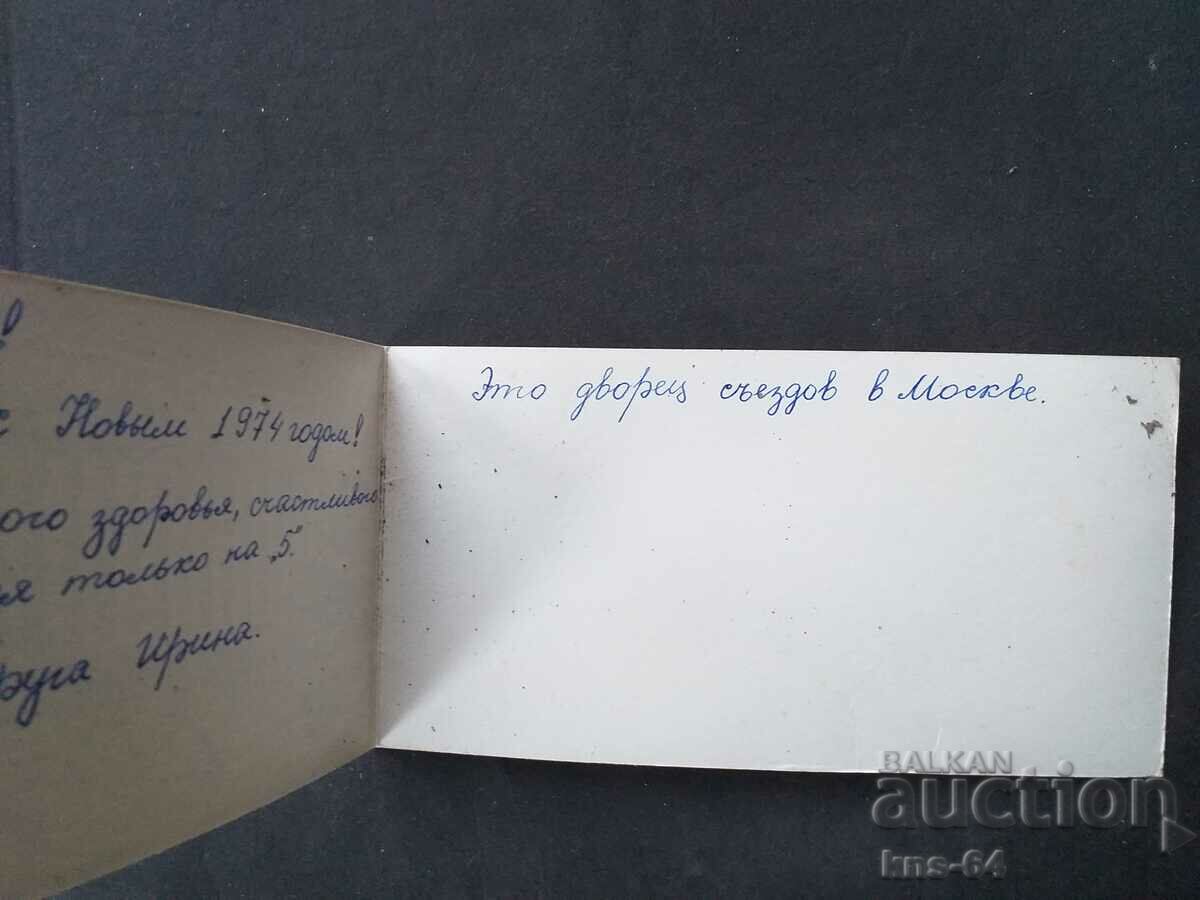 !
с Новым 1974 годом!
ого здоровья, счастливого
я только на „5".
руга Ирина.
Это дворец съездов в Москве.
BALKAN
auction
kns-64